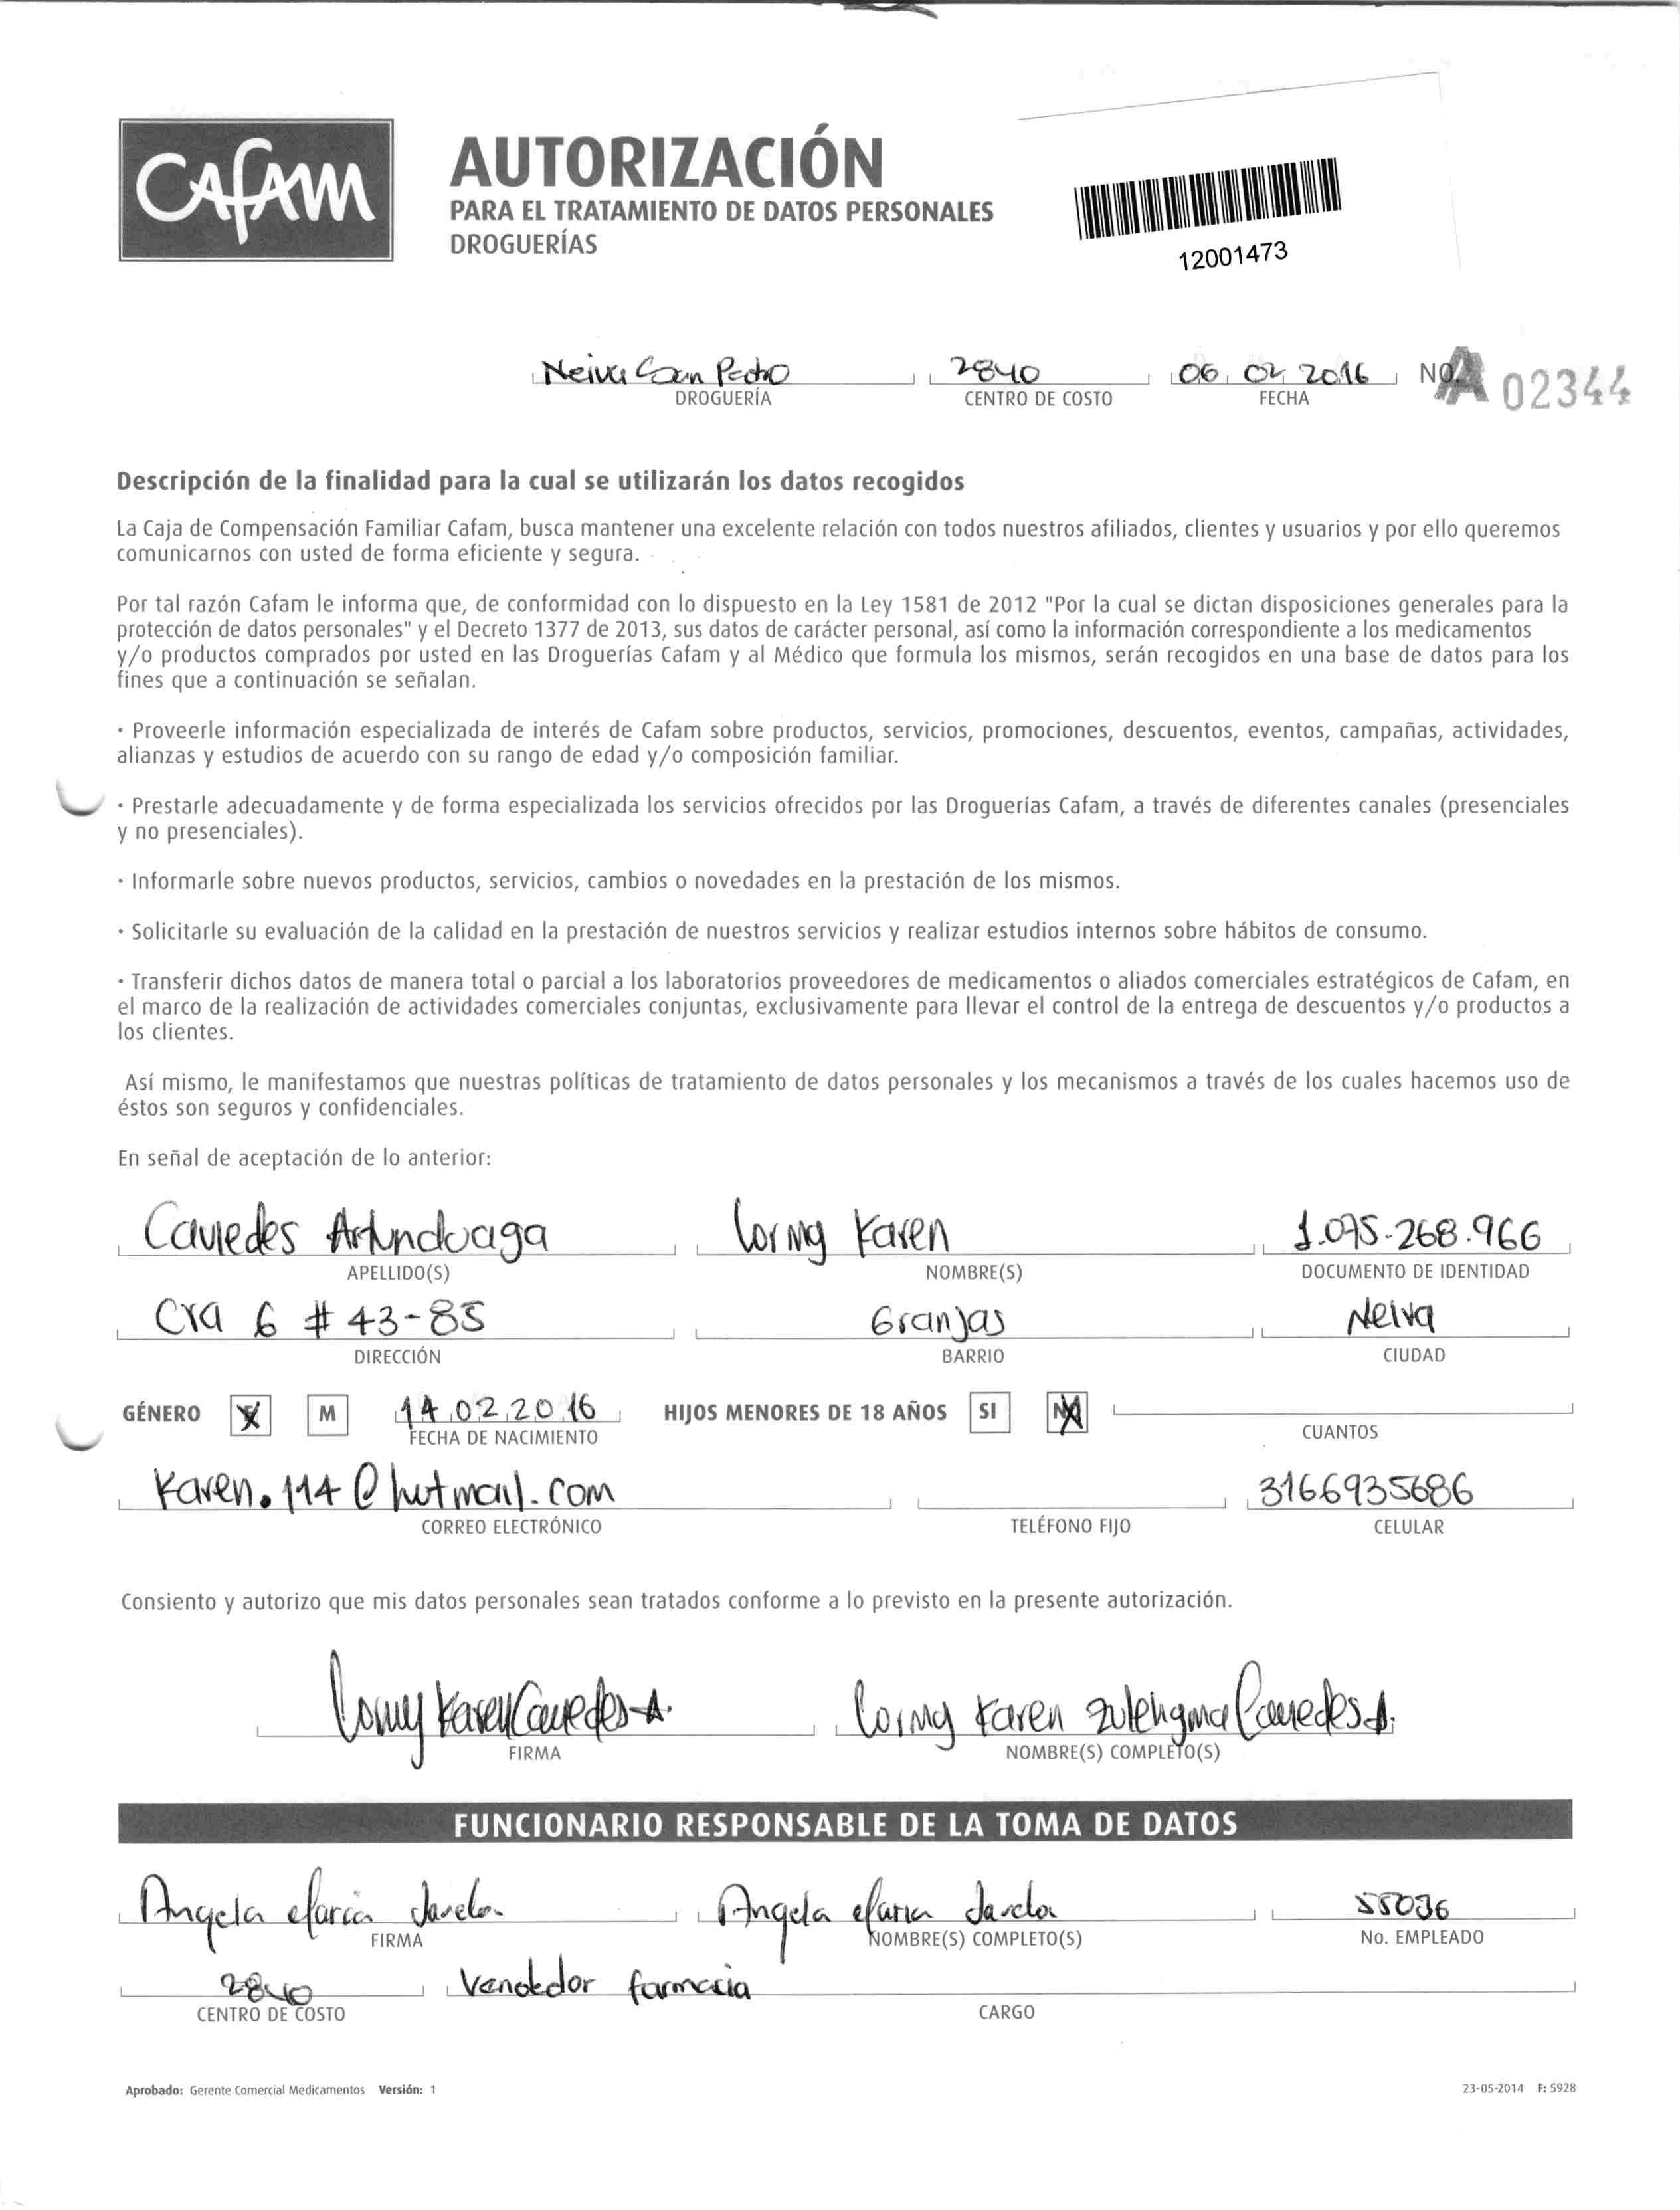 CAFAM
AUTORIZACIÓN
PARA EL TRATAMIENTO DE DATOS PERSONALES
DROGUERÍAS
12001473
Neiva San Pedro 2840 06 02 2016 No. A 02344
DROGUERÍA CENTRO DE COSTO FECHA
Descripción de la finalidad para la cual se utilizarán los datos recogidos
La Caja de Compensación Familiar Cafam, busca mantener una excelente relación con todos nuestros afiliados, clientes y usuarios y por ello queremos
comunicarnos con usted de forma eficiente y segura.
Por tal razón Cafam le informa que, de conformidad con lo dispuesto en la Ley 1581 de 2012 "Por la cual se dictan disposiciones generales para la
protección de datos personales" y el Decreto 1377 de 2013, sus datos de carácter personal, así como la información correspondiente a los medicamentos
y/o productos comprados por usted en las Droguerías Cafam y al Médico que formula los mismos, serán recogidos en una base de datos para los
fines que a continuación se señalan.
· Proveerle información especializada de interés de Cafam sobre productos, servicios, promociones, descuentos, eventos, campañas, actividades,
alianzas y estudios de acuerdo con su rango de edad y/o composición familiar.
· Prestarle adecuadamente y de forma especializada los servicios ofrecidos por las Droguerías Cafam, a través de diferentes canales (presenciales
y no presenciales).
· Informarle sobre nuevos productos, servicios, cambios o novedades en la prestación de los mismos.
· Solicitarle su evaluación de la calidad en la prestación de nuestros servicios y realizar estudios internos sobre hábitos de consumo.
· Transferir dichos datos de manera total o parcial a los laboratorios proveedores de medicamentos o aliados comerciales estratégicos de Cafam, en
el marco de la realización de actividades comerciales conjuntas, exclusivamente para llevar el control de la entrega de descuentos y/o productos a
los clientes.
Así mismo, le manifestamos que nuestras políticas de tratamiento de datos personales y los mecanismos a través de los cuales hacemos uso de
éstos son seguros y confidenciales.
En señal de aceptación de lo anterior:
Caviedes Artunduaga Loring Karen 1.075.268.966
APELLIDO(S) NOMBRE(S) DOCUMENTO DE IDENTIDAD
Cra 6 # 43-85 Granjas Neiva
DIRECCIÓN BARRIO CIUDAD
GÉNERO F M 14 02 2016 HIJOS MENORES DE 18 AÑOS SI NO
FECHA DE NACIMIENTO CUANTOS
Karen.114@hotmail.com 3166935686
CORREO ELECTRÓNICO TELÉFONO FIJO CELULAR
Consiento y autorizo que mis datos personales sean tratados conforme a lo previsto en la presente autorización.
Karen Caviedes A. Karen Caviedes A.
FIRMA NOMBRE(S) COMPLETO(S)
FUNCIONARIO RESPONSABLE DE LA TOMA DE DATOS
Angela Angela 55036
FIRMA NOMBRE(S) COMPLETO(S) No. EMPLEADO
2840 Vendedor farmacia
CENTRO DE COSTO CARGO
Aprobado: Gerente Comercial Medicamentos Versión: 1 23-05-2014 F: 5928